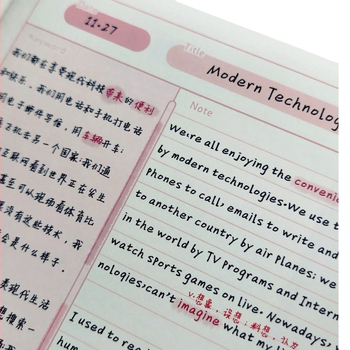 Date
11·27
Title
Modern Technolog
Keyword
我们都在享受现代科技带来的便利
和娱乐。我们用电话和手机打电话
用电子邮件写信,用车辆开车;
飞机去另一个国家;我们通
互联网看到世界正在发生
甚至可以现场看体育比
没有这些技术,我
会是什么样子。
现代生活
想探索一
Note
We're all enjoying the convenie
by modern technologies. We use t
Phones to call, emails to write and
to another country by air Planes; we
in the world by TV Programs and Intern
watch sports games on live. Nowadays,
nologies, can't imagine what my li
v. 想象,设想;料想,认为
I used to read
hum